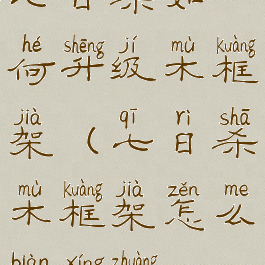 hé shēng jí mù kuàng
何升级木框
jià qī rì shā
架（七日杀
mù kuàng jià zěn me
木框架怎么
xíng zhuàng